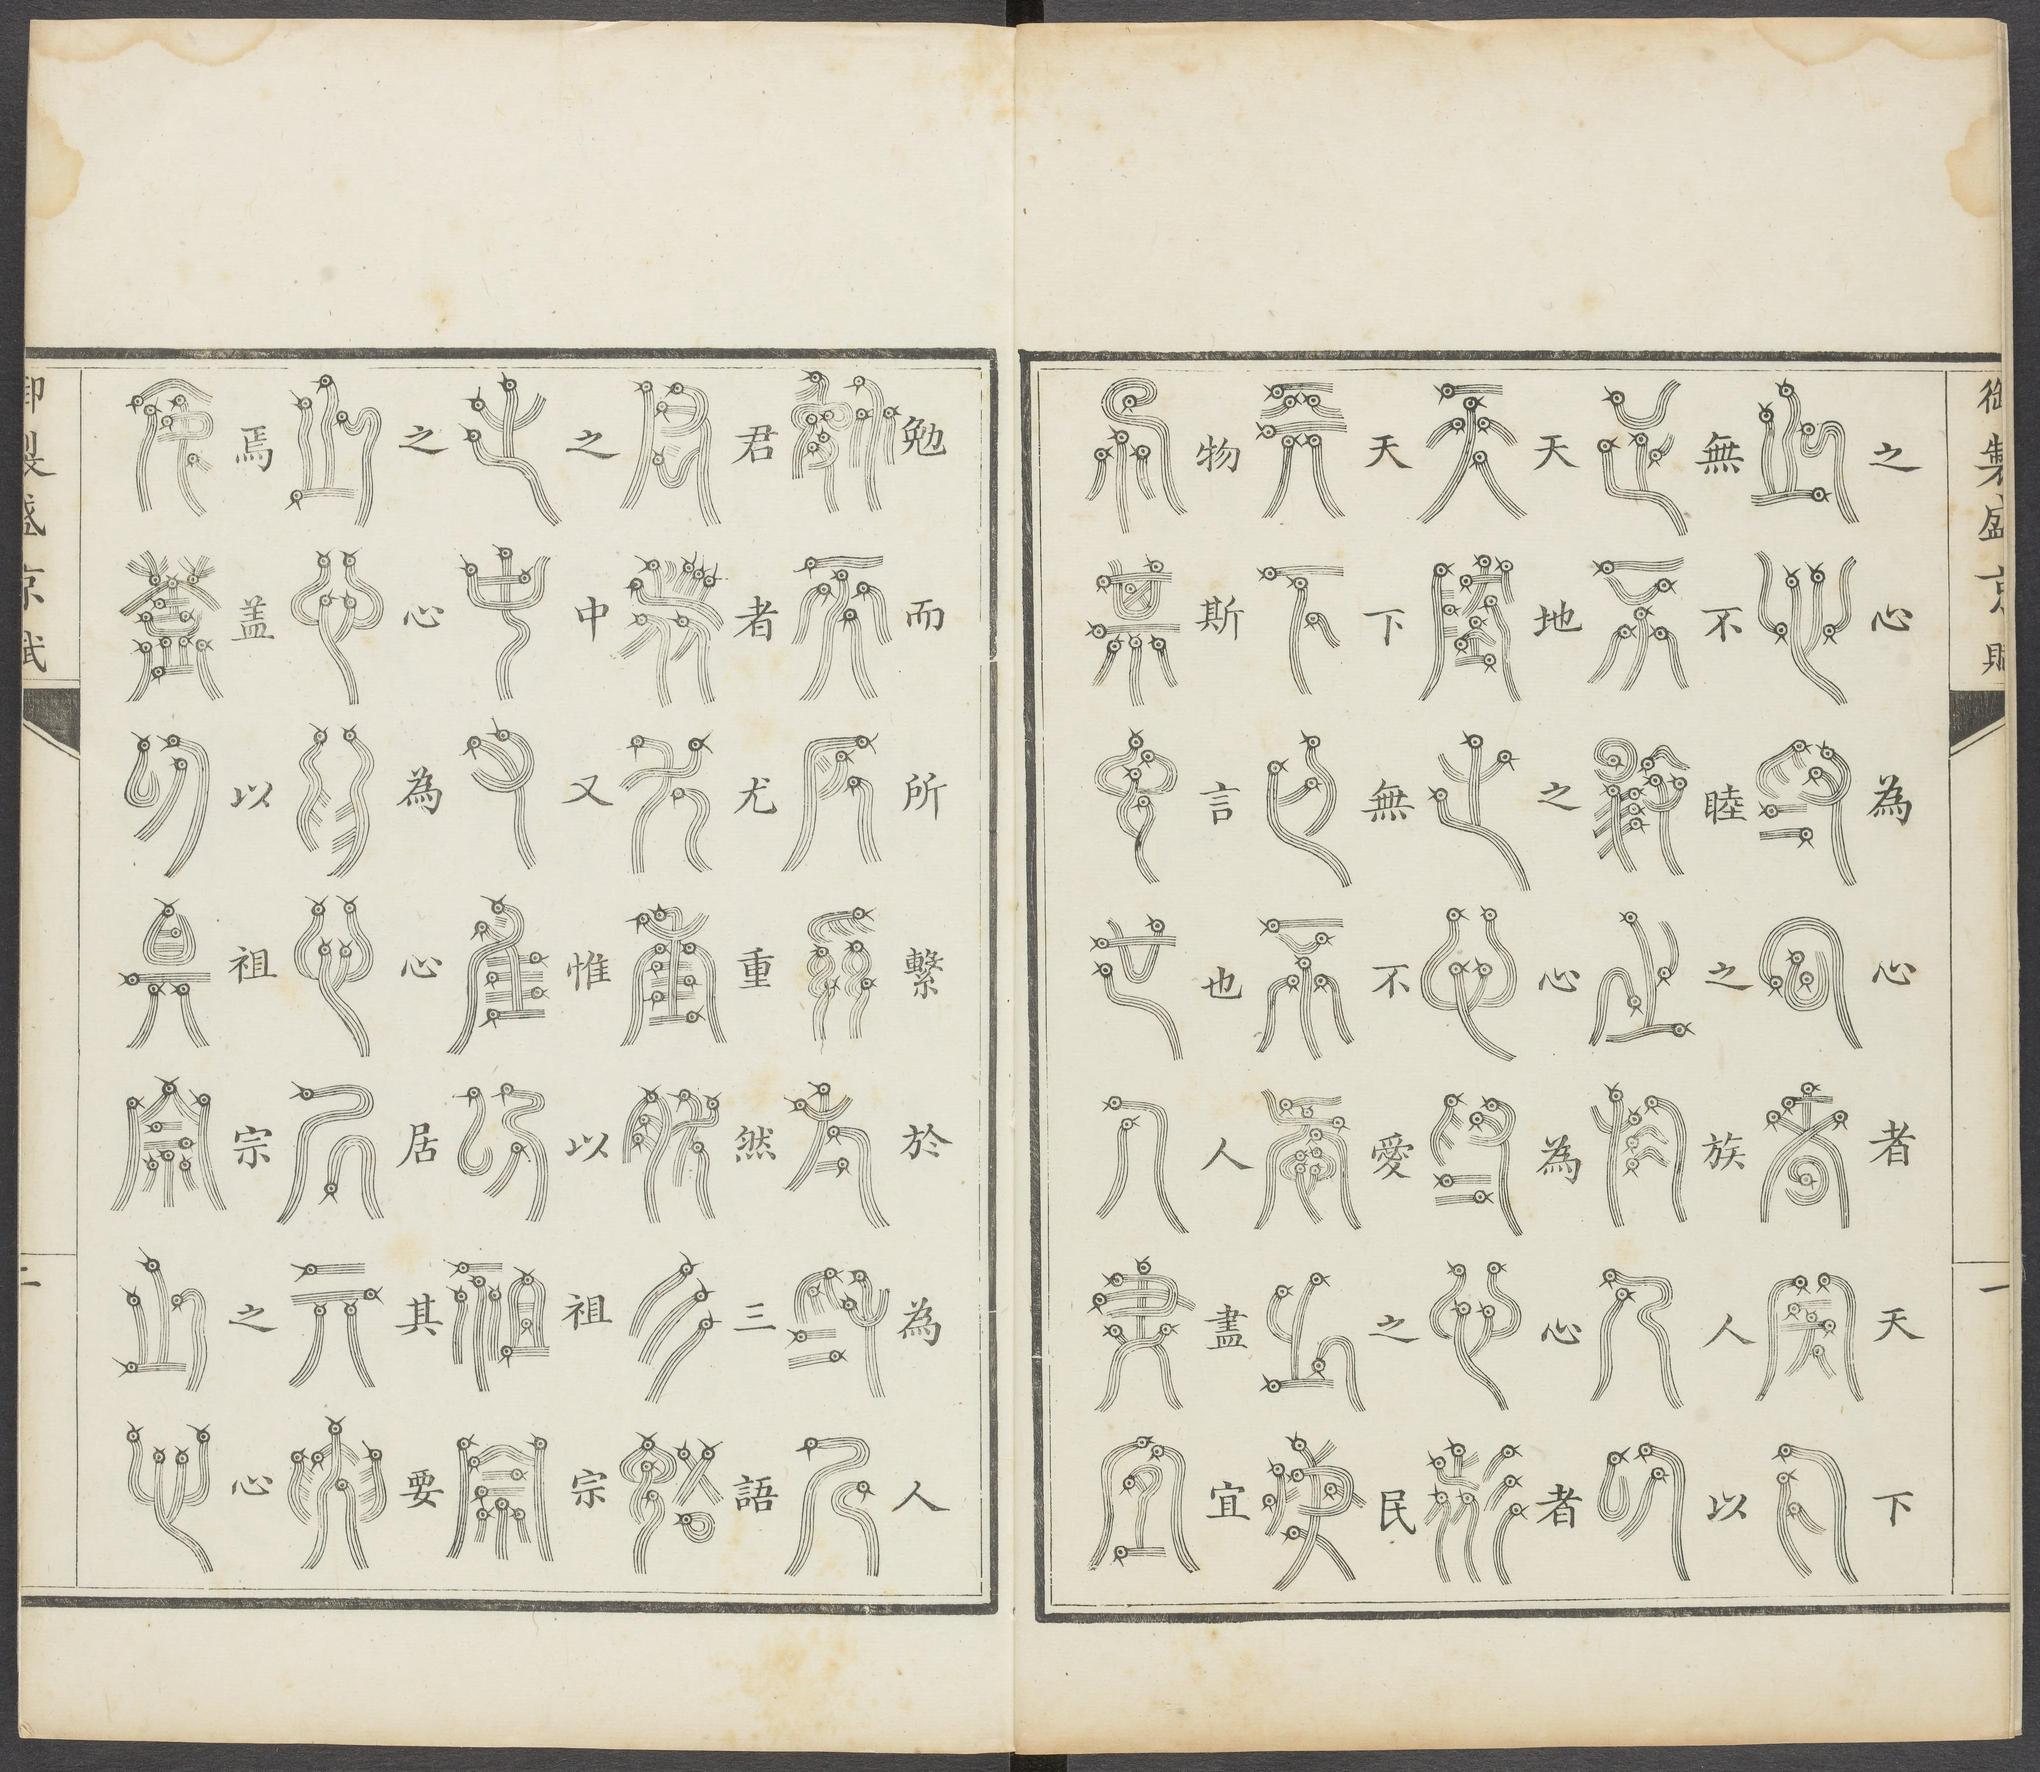 御製盛京賦 一
之心為心者天下
無不睦之族人以
天地之心為心者
天下無不愛之民
物斯言也人盡宜
勉而所繫於為人
君者尤重然三語
之中又惟以祖宗
之心為心居其要
焉盖以祖宗之心
御製盛京賦 二